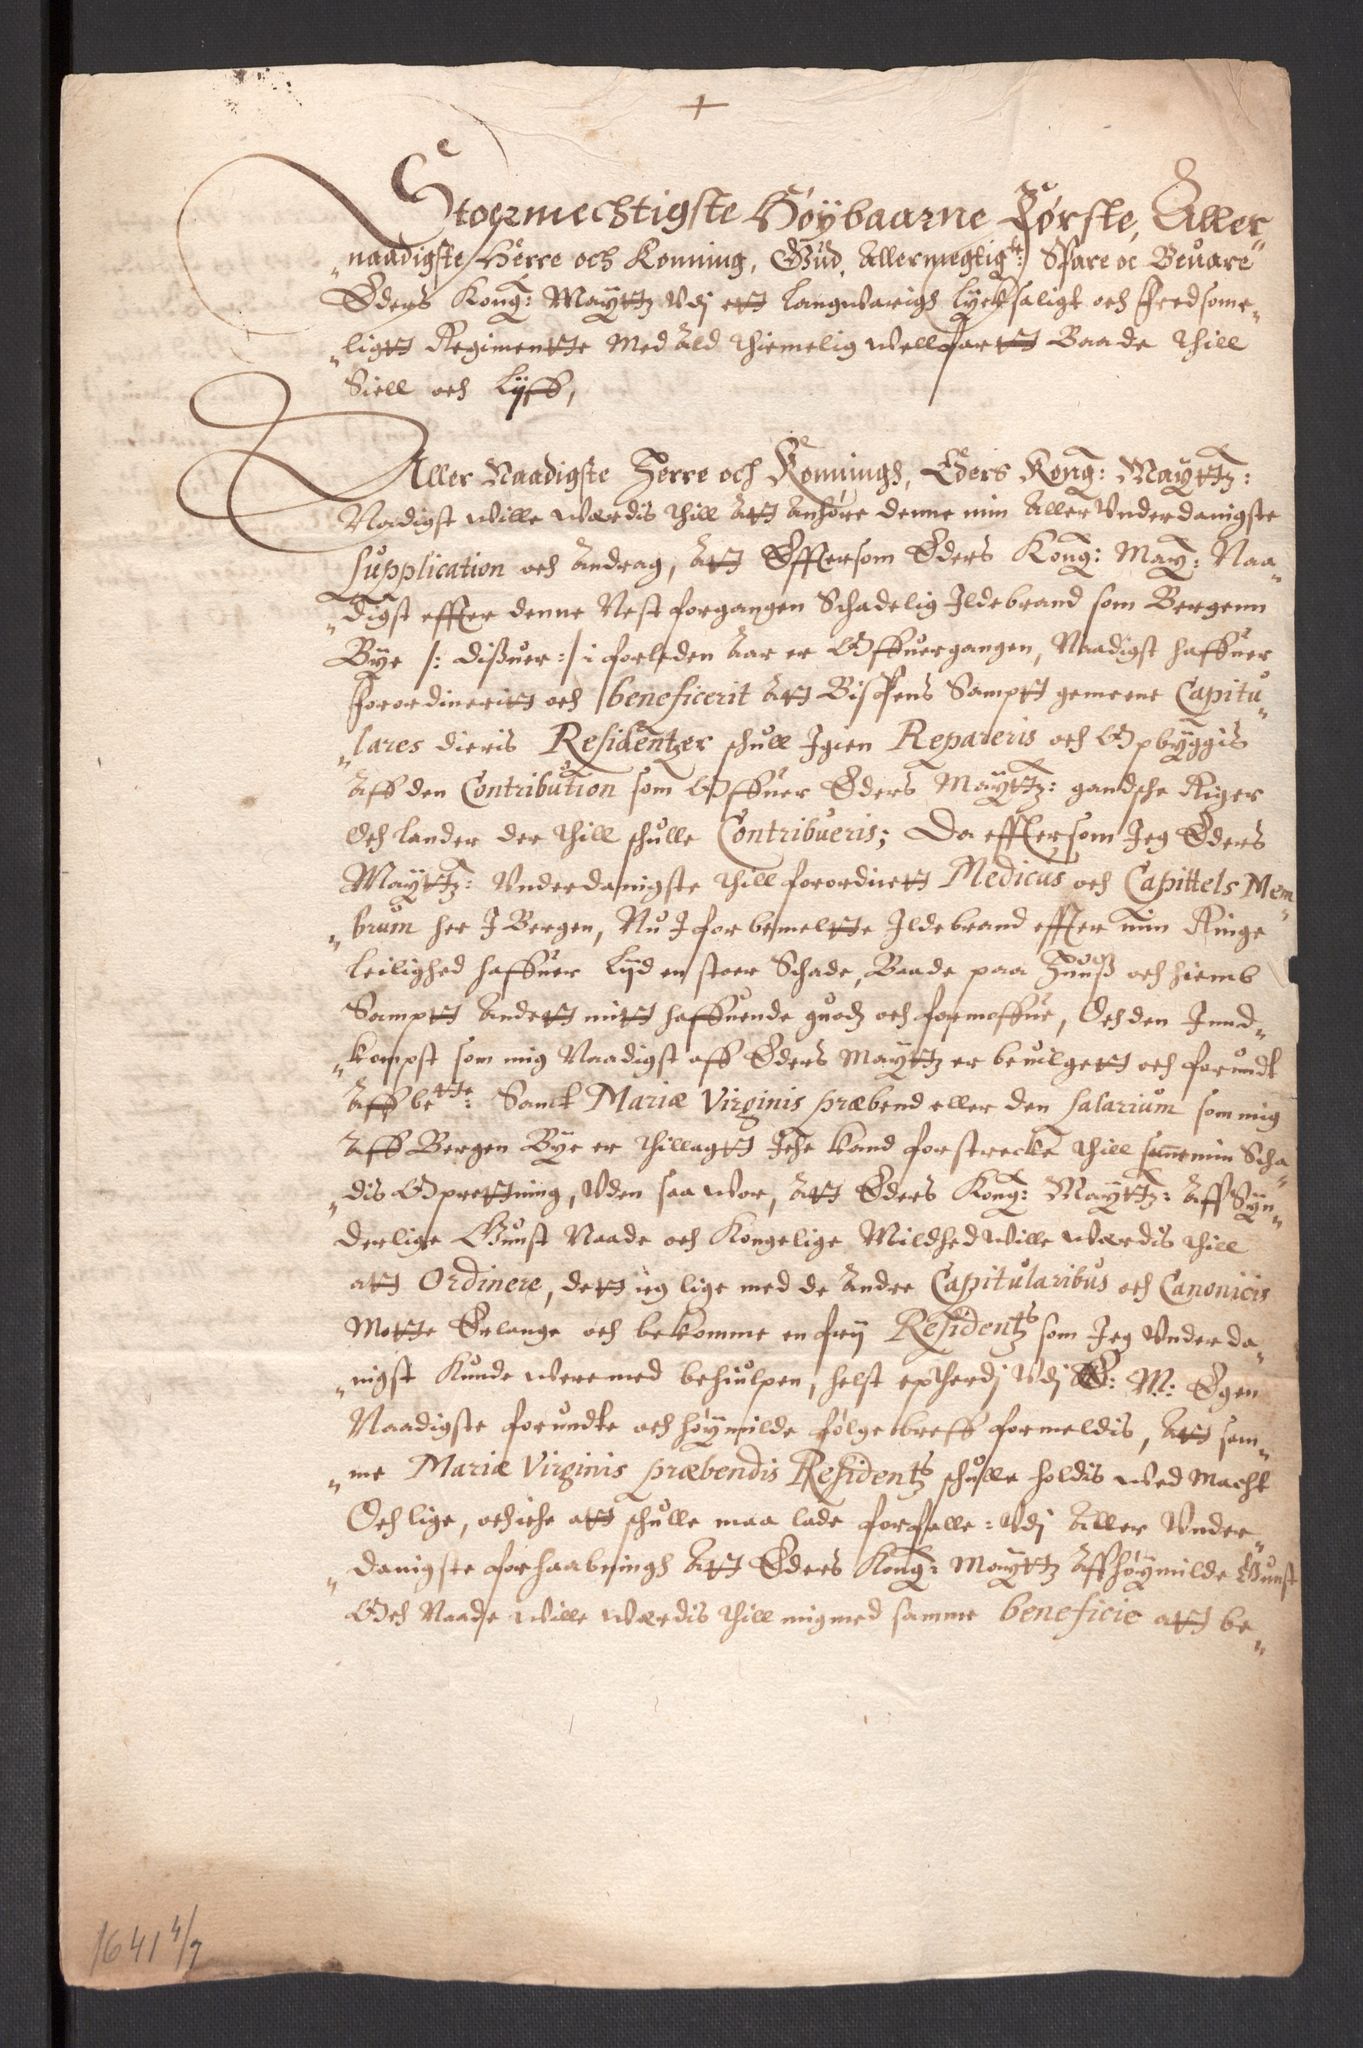 +
Stormechtigste Höybaarne Förste, Aller„
„naadigste Herre och Konning, Gud Allermegtigst: Spare oc Beuare
Eders Kong: Maytts Vdj ett langwarigh lycksaligt och fredsome„
„ligtt Regimentte Med Ald thimelig wellfartt Baade thill
Siell och Lyff,
Aller Naadigste Herre och Konningh, Eders Kong: Maytts:
Nadigst wille werdis thill Att Anhöre denne min Aller Vnderdanigste
Supplication och Andrag, Att Effterson Eders Kong: May: Naa„
„digst effter denne Nest forgangen Schadelig Ildebrand som Bergenn
Bye /: dißuer :/ i forleden Aar er Offuergangen, Naadigst haffuer
forordineritt och beneficerit Att Bispens Samptt gemeene Capitu„
„lares dieris Residentzer schull Igien Repareris och Opbyggis
Aff den Contribution som Offuer Eders Maytts: gandsche Riger
Och lander der thill schulle Contribueris; Da efftersom Jeg Eders
Maytts: Vnderdanigste thill forordnett Medicus och Capittels Mem„
„brum her I Bergen, Nu I for bemeltte Ildebrand effter min Ringe
leilighed haffuer lyd en stoer Schade, Baade paa Huuß och hiemb
Samptt Andett mitt haffuende guodz och formoffue, Och den Innd„
„kompst som mig Naadigst aff Eders Maytts er beuilgett och forundt
Aff be^tte: Sanct Mariæ Virginis præbend eller den salarium som mig
Aff Bergen Bye er thillagtt Iche kand forstrecke thill samme min Scha„
„dis Oprettning, Vden saa wor, Att Eders Kong: Maytts: Aff Syn„
derlige Gunst Naade och Kongelige Mildhed wille werdis thill
att Ordinere, dett ieg lige med de Andre Capitularibus och Canonicis
Motte Erlange och bekomme en fry Residents som Jeg Vnderda„
„nigst kunde were med behiulpen, helst eptherdj Vdj E: M: Egen
Naadigste forundte och höymilde fölgebreff formeldis, Att sam„
„me Mariæ Virginis præbendis Residents schulle holdis wed Macht
Och lige, och iche att schulle maa lade forfalle: Vdj Aller Vnder„
„danigste forhaabningh Att Eders Kong: Maytts Aff höymilde Gunst
Och Naade wille werdis thill mig med samme beneficie att be„
1641 4/7